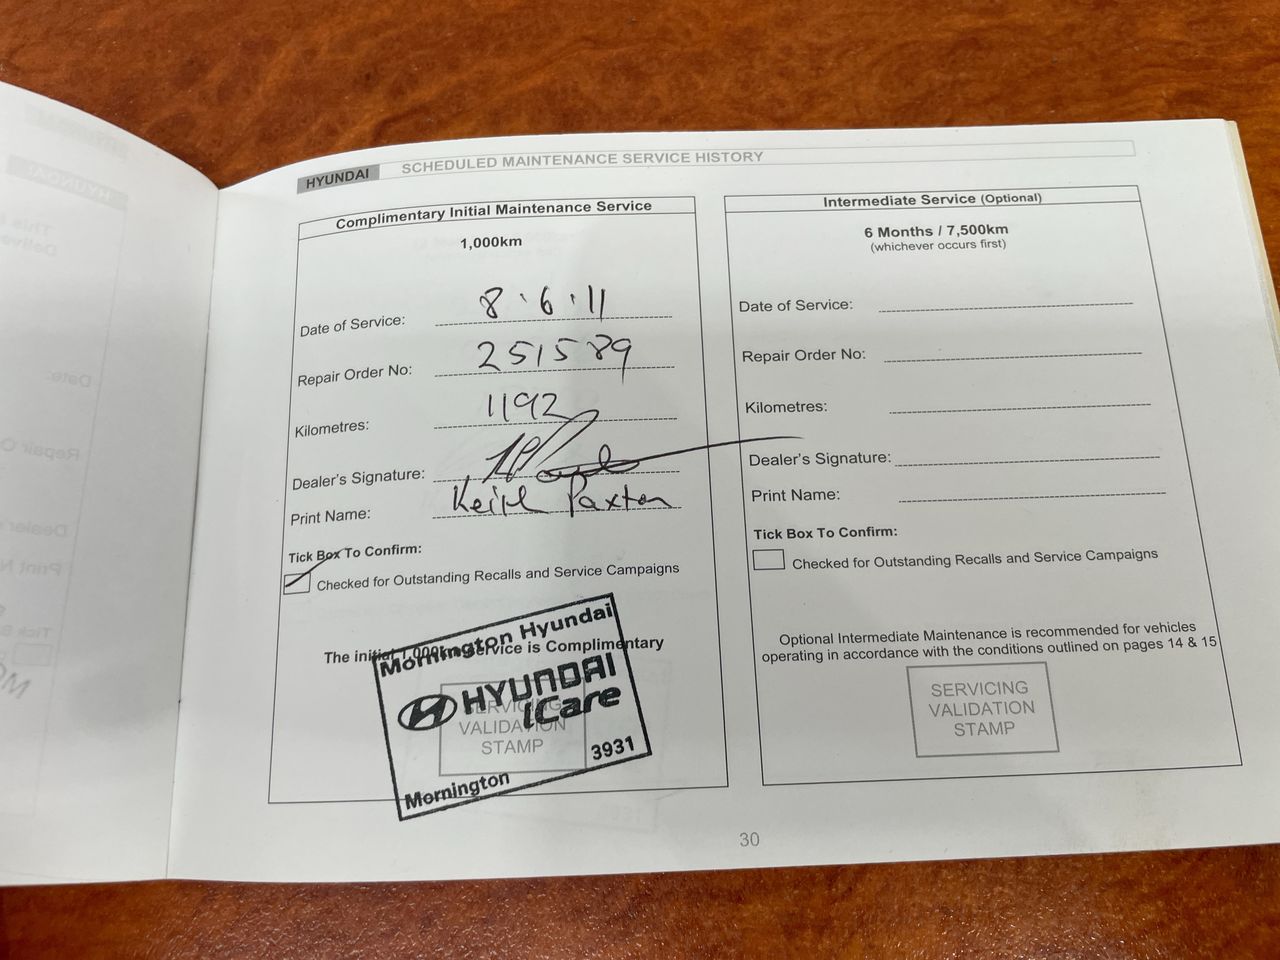 HYUNDAI SCHEDULED MAINTENANCE SERVICE HISTORY
Complimentary Initial Maintenance Service
1,000km
Date of Service: 8.6.11
Repair Order No: 251589
Kilometres: 1192
Dealer's Signature:
Print Name: Keith Paxton
Tick Box To Confirm:
Checked for Outstanding Recalls and Service Campaigns
The initial 1,000km Service is Complimentary
Mornington Hyundai
HYUNDAI
iCare
SERVICING
VALIDATION
STAMP
3931
Mornington
Intermediate Service (Optional)
6 Months / 7,500km
(whichever occurs first)
Date of Service:
Repair Order No:
Kilometres:
Dealer's Signature:
Print Name:
Tick Box To Confirm:
Checked for Outstanding Recalls and Service Campaigns
Optional Intermediate Maintenance is recommended for vehicles
operating in accordance with the conditions outlined on pages 14 & 15
SERVICING
VALIDATION
STAMP
30